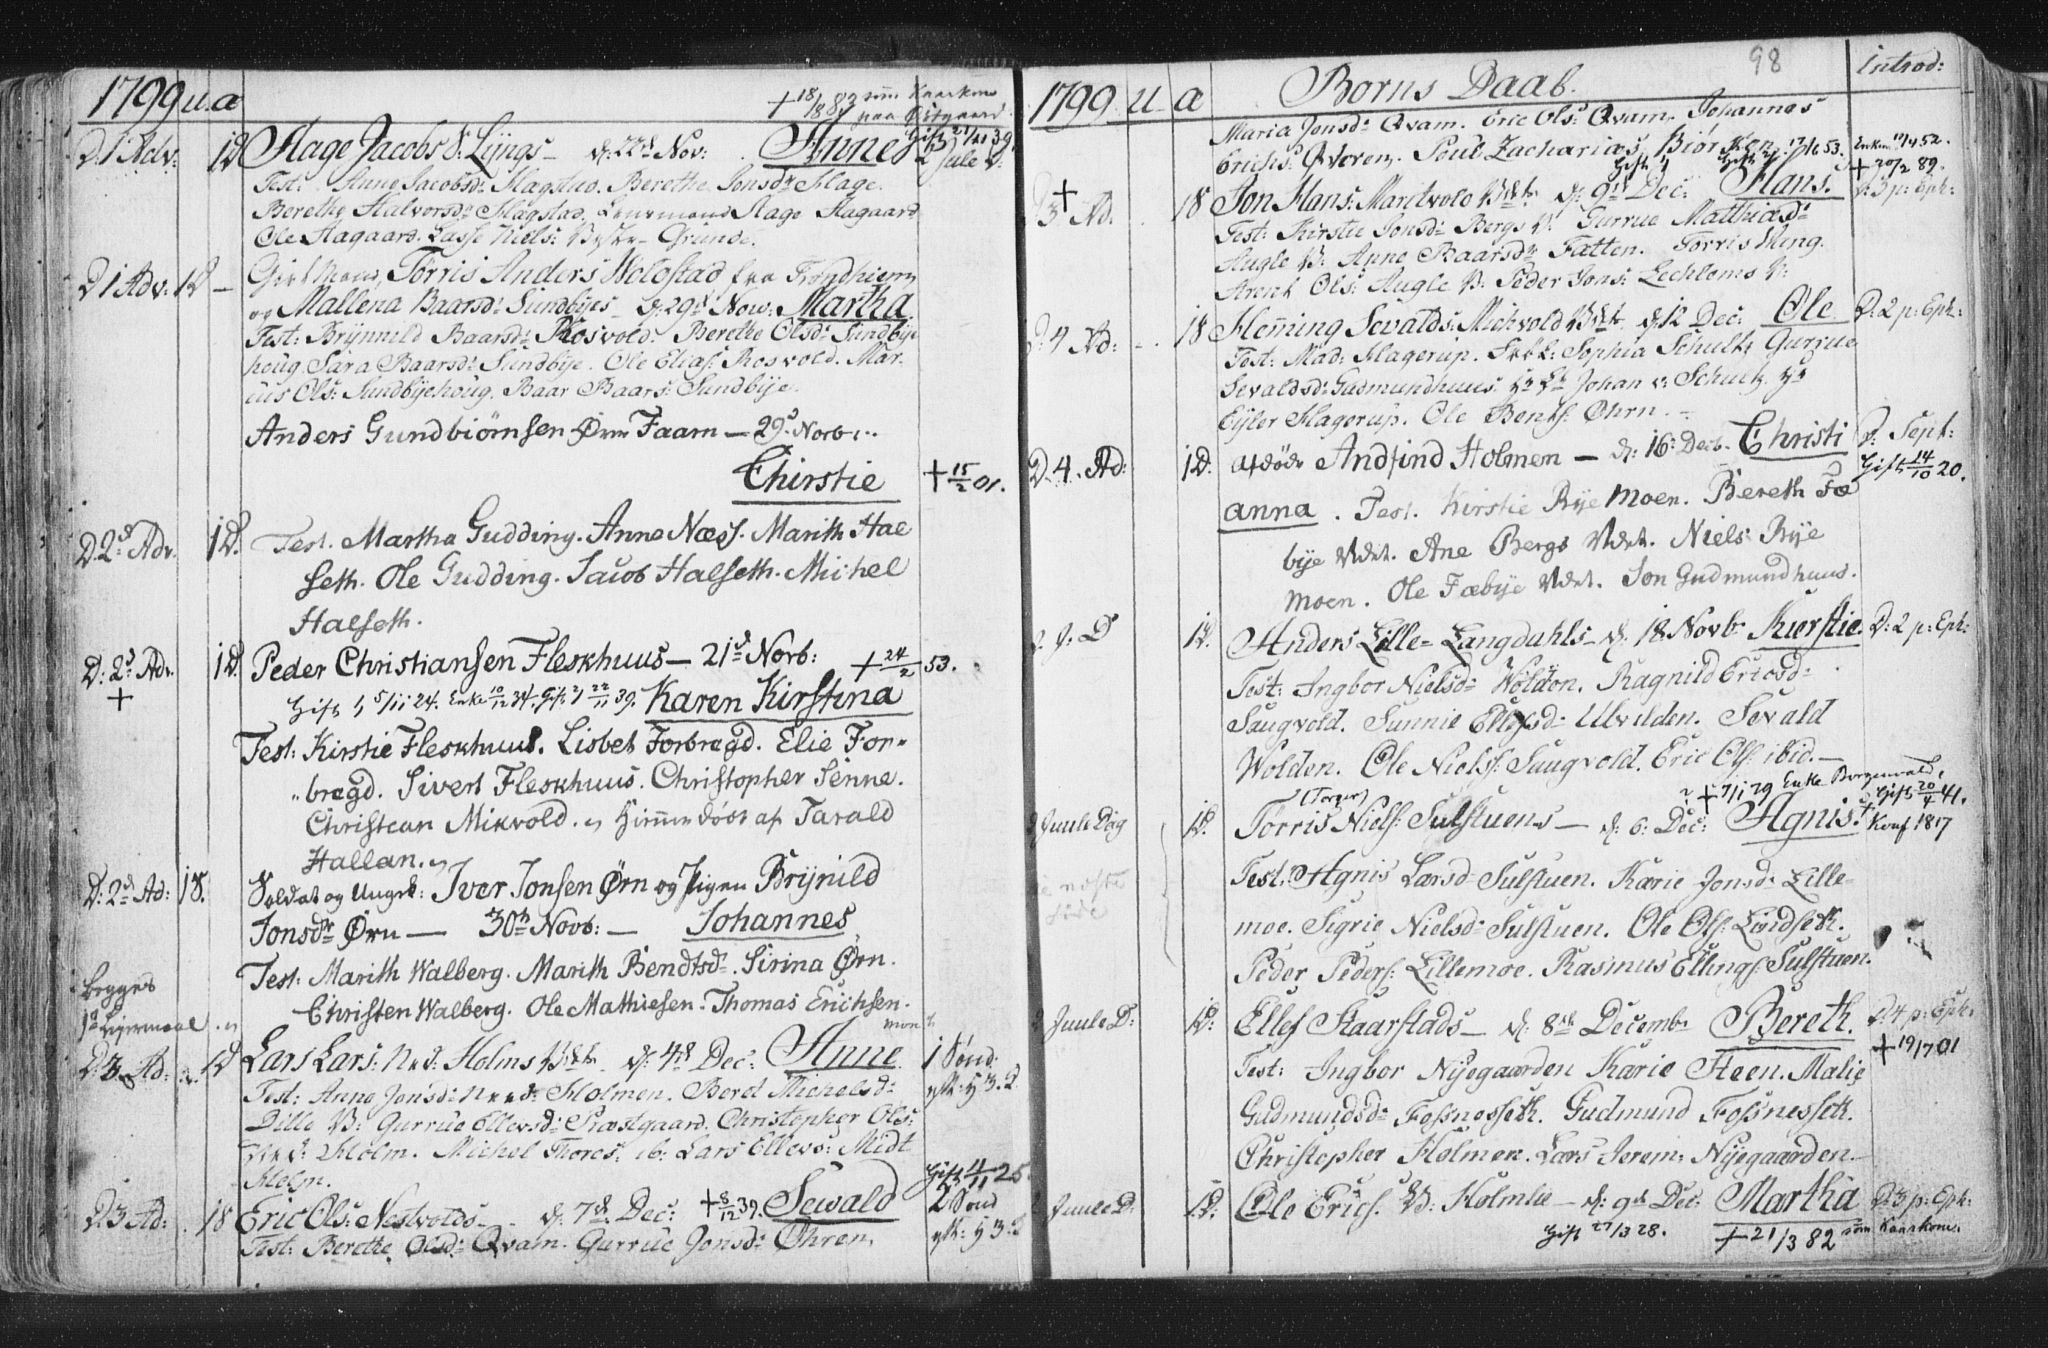 1799 u. a
+ 18/1 883 som Kaarkone
paa Østgaard
D. 1 Adv: 1D Hage Jacobs S. Ljings – d: 22d Nov: Anne Gift 21/11 39.
2 Jule D.
Test: Anne Jacobsd: Hagstuo. Berethe Jonsdr Hage.
Berethe Halvorsd: Hagstad. Hage Hagaard
Ole Hagaard. Lasse Niels:
D 1 Adv: 1D – Torris Anders Holostad fra Trondhiem
og Mallena Baarsd: Sundbyes – d: 29d Nov: Martha.
Test: Brynnild Baarsd: Rosvold. Berethe Olsd: Sundbye
houg. Sara Baarsd: Sundbije. Ole Elias: Rosvold. Mar-
cus Ols: Sundbijehoug. Baar Baars: Sundbije.
Anders Gundbiørnsen Ørn Faarn – 29d Novb:
Chirstie + 15/2 01.
D. 2d Adv. 1D. Test. Martha Gudding. Anne Næss. Marith Hal
seth. Ole Gudding. Jacob Halseth. Michel
Halseth.
D: 2d Adv. 1D. Peder Christiansen Fleskhuus – 21d Novb: + 24/2 53.
+ Gift 1, 5/11 24. Enke 10/12 34. Gift 2, 22/11 39. Karen Kirstina
Test: Kirstie Fleskhuus. Lisbet Forbregd. Elie For-
bregd. Sivert Fleskhuus. Christopher Senne.
Christean Mikvold. af Tarald
Hallan.
D: 2d Ad: 18. Soldat og Ungk: Iver Jonsen Ørn og Pigen Brynild
Jonsdr Ørn — 30th Novb: — Johannes
Test: Marith Walberg. Marith Bendtsdr. Sirina Ørn.
Christen Walberg. Ole Mathiesen. Thomas Erichsen.
begges
1te Leiermaal
D: 3. Ad: 1D Lars Lars: Ned: Holms d: 4d Dec: Anne 1 Sønd:
Test: Anne Jonsd: Ned: Holmen. Beret Michelsd:
Dille V: Gurrue Ellevsd: Præstgaard. Christopher Ols:
Ned: Holm. Michel Thores: ib: Lars Ellevs: Midt
Holm.
Gift 4/11 25.
D. 3 Ad: 18 Eric Ols: Nestvolds – d: 7d Dec: + 8/12 39. Sewald 2 Sønd
Test: Berethe Olsd: Qvam. Gurrue Jonsd: Øhren.
1799. u a Børns Daab. 98 Introd:
Maria Jonsd: Qvam. Eric Ols: Qvam. Johannes
Erichs: Qveren. Poul Zacharias Biørken. 17/6 53. Enkem 17/4 52.
+ 20/2 89.
+
3 Ad. 18 Jon Hans: Maritvolo d: 9d Dec: Hans. D: 3 p: Eph:
Test: Kirstie Jonsd: Bergs V: Gurrue Matthiasd:
Augle V: Anne Baarsd: Fætten. Torris Weng.
Arent Ols: Augle V: Peder Jons: Lechlemo V:
D. 4 Ad: 18 Flemming Sevalds: Michvold d: 12 Dec: Ole D: 2 p: Eph:
Test: Mad: Hagerup. Sophia Schultz Gurrue
Sevaldsd: Gudmundhuus. Johan v: Schultz.
Eyler Hagerup. Ole Bents: Øhrn.
D. 4. Ad: 1D. afdøde Andfind Holmen – d: 16: Decb. Christi D. Sept:
anna. Gift 14/10 20.
Test. Kirstie Rije Moen. Bereth Fæ
bije Vdet. Ane Bergs Vdet. Niels Rije
moen. Ole Fæbije Vdet. Jon Gudmundhuus.
2 J: D 1D. Anders Lille-Langdahls – d. 18 Novb: Kierstie. D: 2 p: Eph:
Test: Ingbor Nielsd: Wolden. Ragnild Ericsd:
Saugvold. Sunnie Ellefsd: Ulvilden. Sevald
Wolden. Ole Niels: Saugvold. Eric Ols: ibid.
(Torger) ? + 7/1 79 Enke Borgenvald.
2 Juule Dag 1D. Torris Niels: Sulstuens — d: 6: Dec: Agnis. Gift 20/4 41.
Konf 1817
Test: Agnis Larsd: Sulstuen. Karie Jonsd: Lille-
moe. Sigrie Nielsd: Sulstuen. Ole Ols: Lindseth.
Peder Peders: Lillemoe. Rasmus Ellings: Sulstuen.
næste
side
2 Juule D: 1D. Ellef Skaarstads – d: 8th Decemb. Bereth. D: 4 p: Eph:
+ 19/7 01
Test: Ingbor Nyegaarden Karie Steen. Malie
Gudmundsd: Fossnesseth. Gudmund Fossnesseth.
Christopher Holmen. Lars Jerem: Nyegaarden –
2 Juule D: 1D. Ole Erics: V: Holmlie – d: 9d Dec: Martha D: 3 p: Eph:
Gift 27/3 28. + 21/3 82 som Kaarkone.